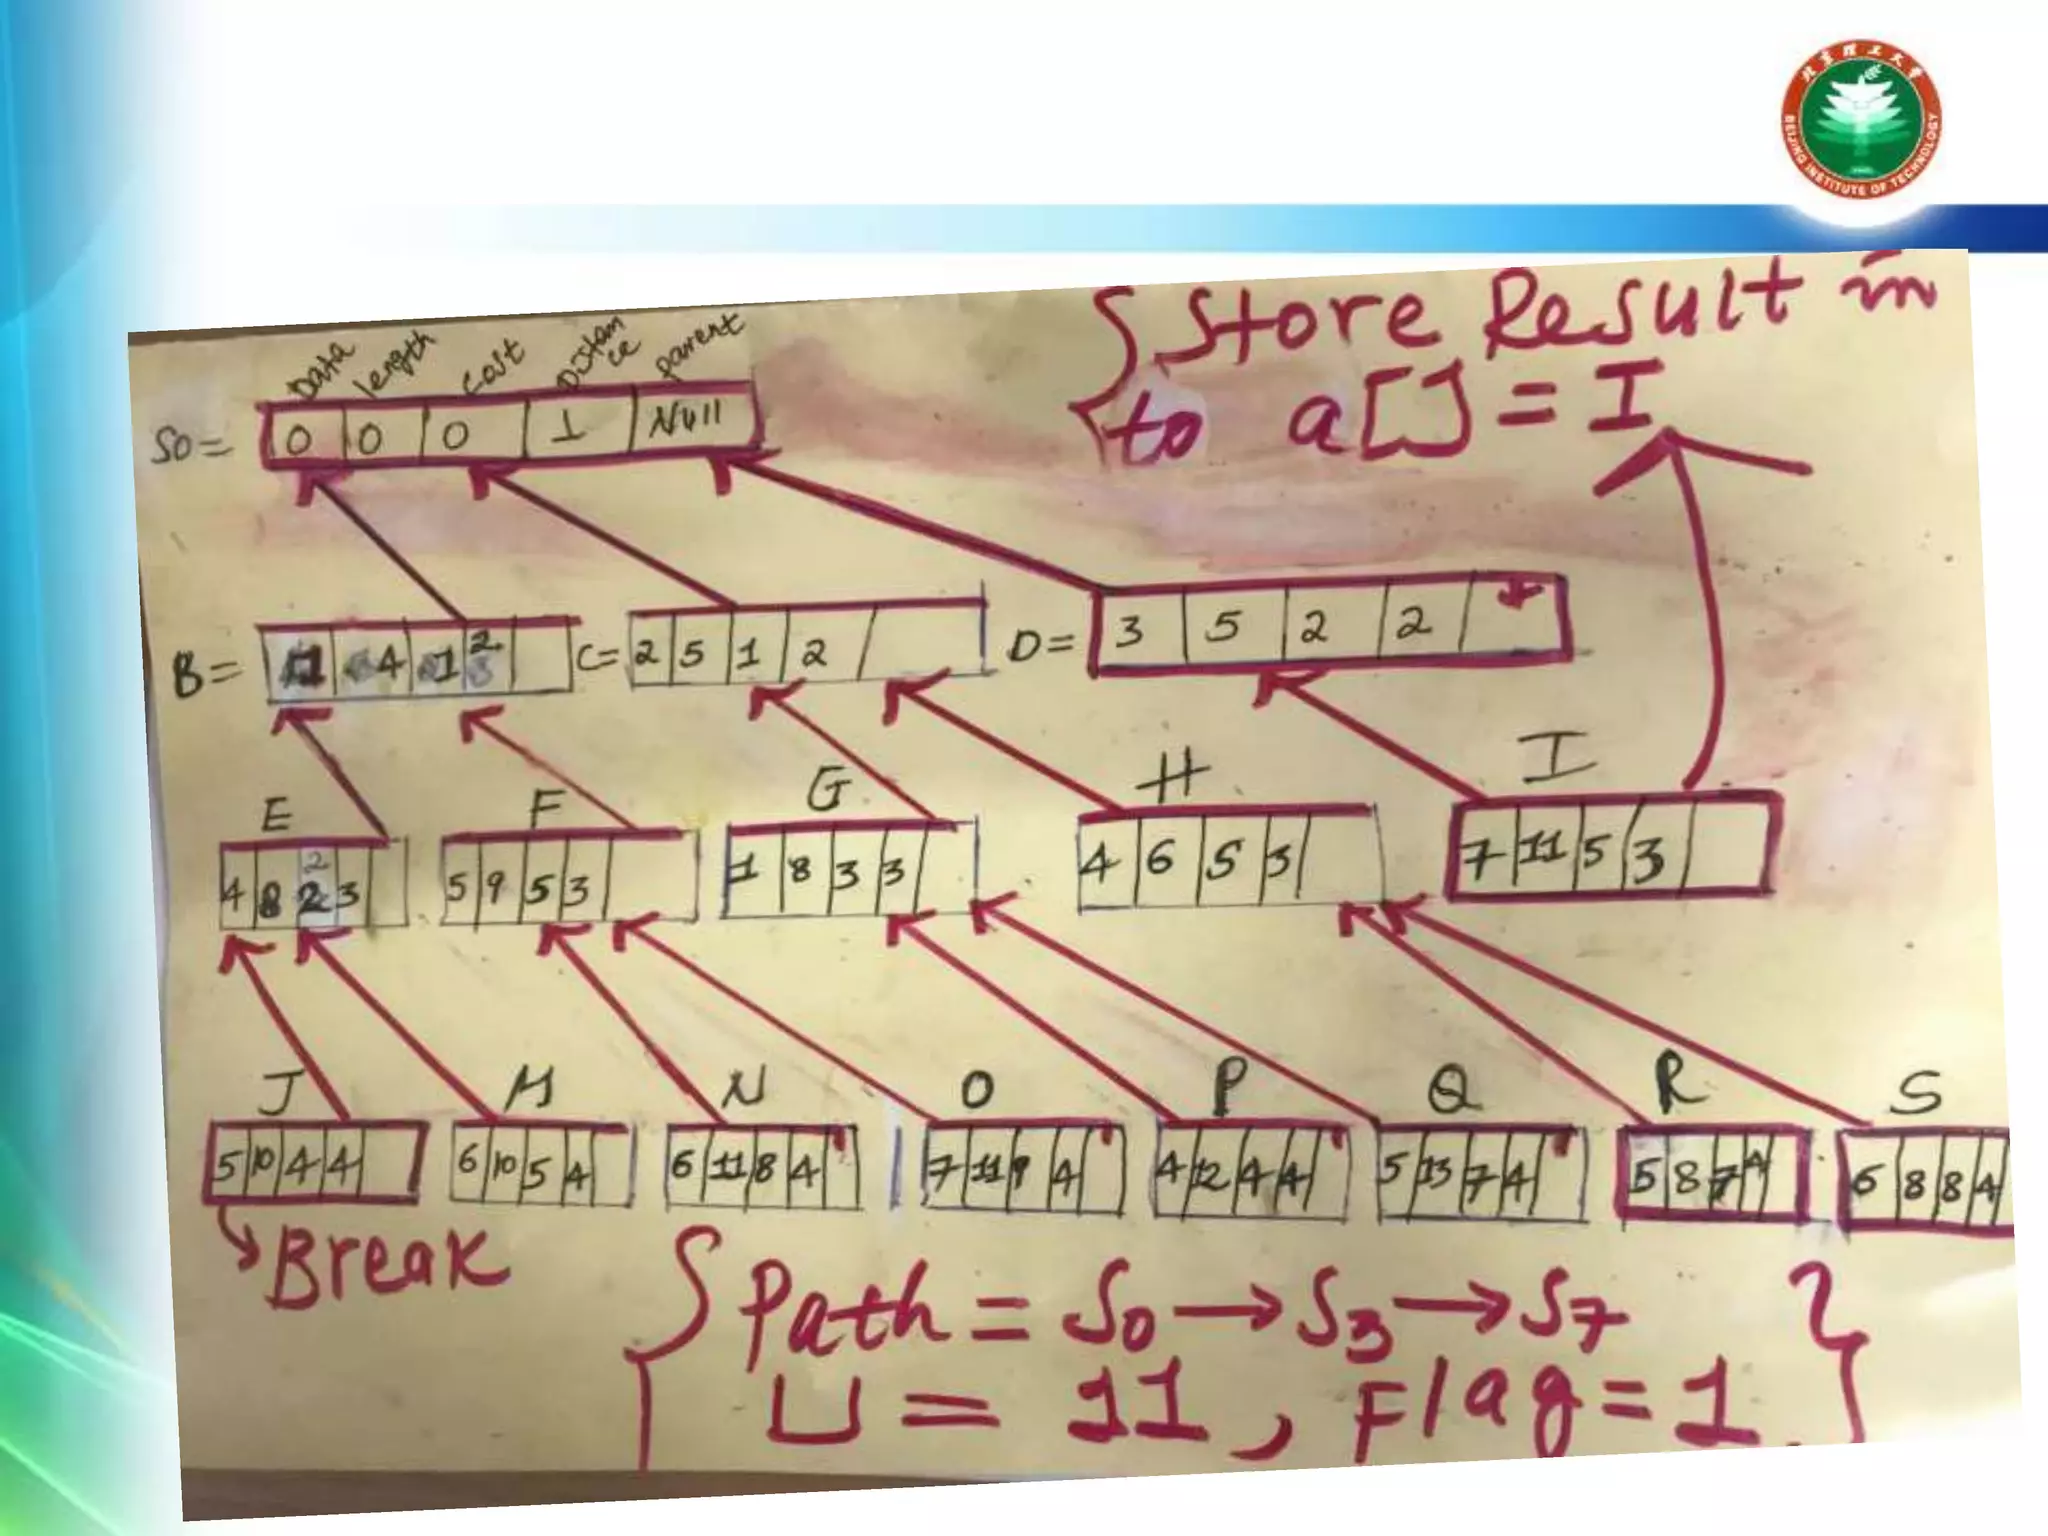 北京理工大学
BEIJING INSTITUTE OF TECHNOLOGY
{ Store Result in
to a[] = I
Data length Cost Distance parent
S0 = 0 0 0 1 Null
B = 1 4 1 2
C = 2 5 1 2
D = 3 5 2 2
E F G H I
4 8 2 3
5 9 5 3
1 8 3 3
4 6 5 3
7 11 5 3
J M N O P Q R S
5 10 4 4
6 10 5 4
6 11 8 4
7 11 9 4
4 12 4 4
5 13 7 4
5 8 7 4
6 8 8 4
Break
{ Path = S0 → S3 → S7 }
U = 11, Flag = 1